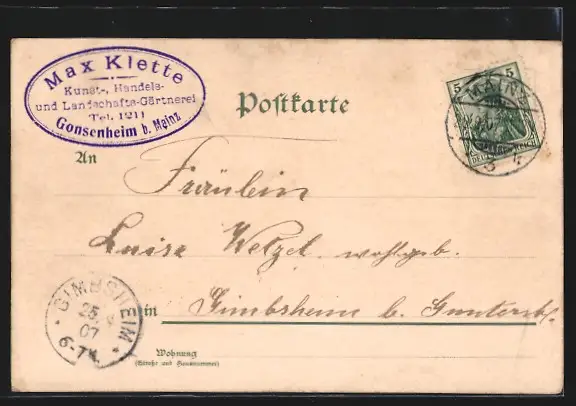 Max Klette
Kunst-, Handels-
und Landschafts-Gärtnerei
Tel. 1211
Gonsenheim b. Mainz
Postkarte
5 5
MAINZ
3
An
Fräulein
Luise Wetzel wohlgeb.
in Gimbsheim b. Guntersbl.
GIMBSHEIM
25
07
6-7N.
Wohnung
(Straße und Hausnummer)